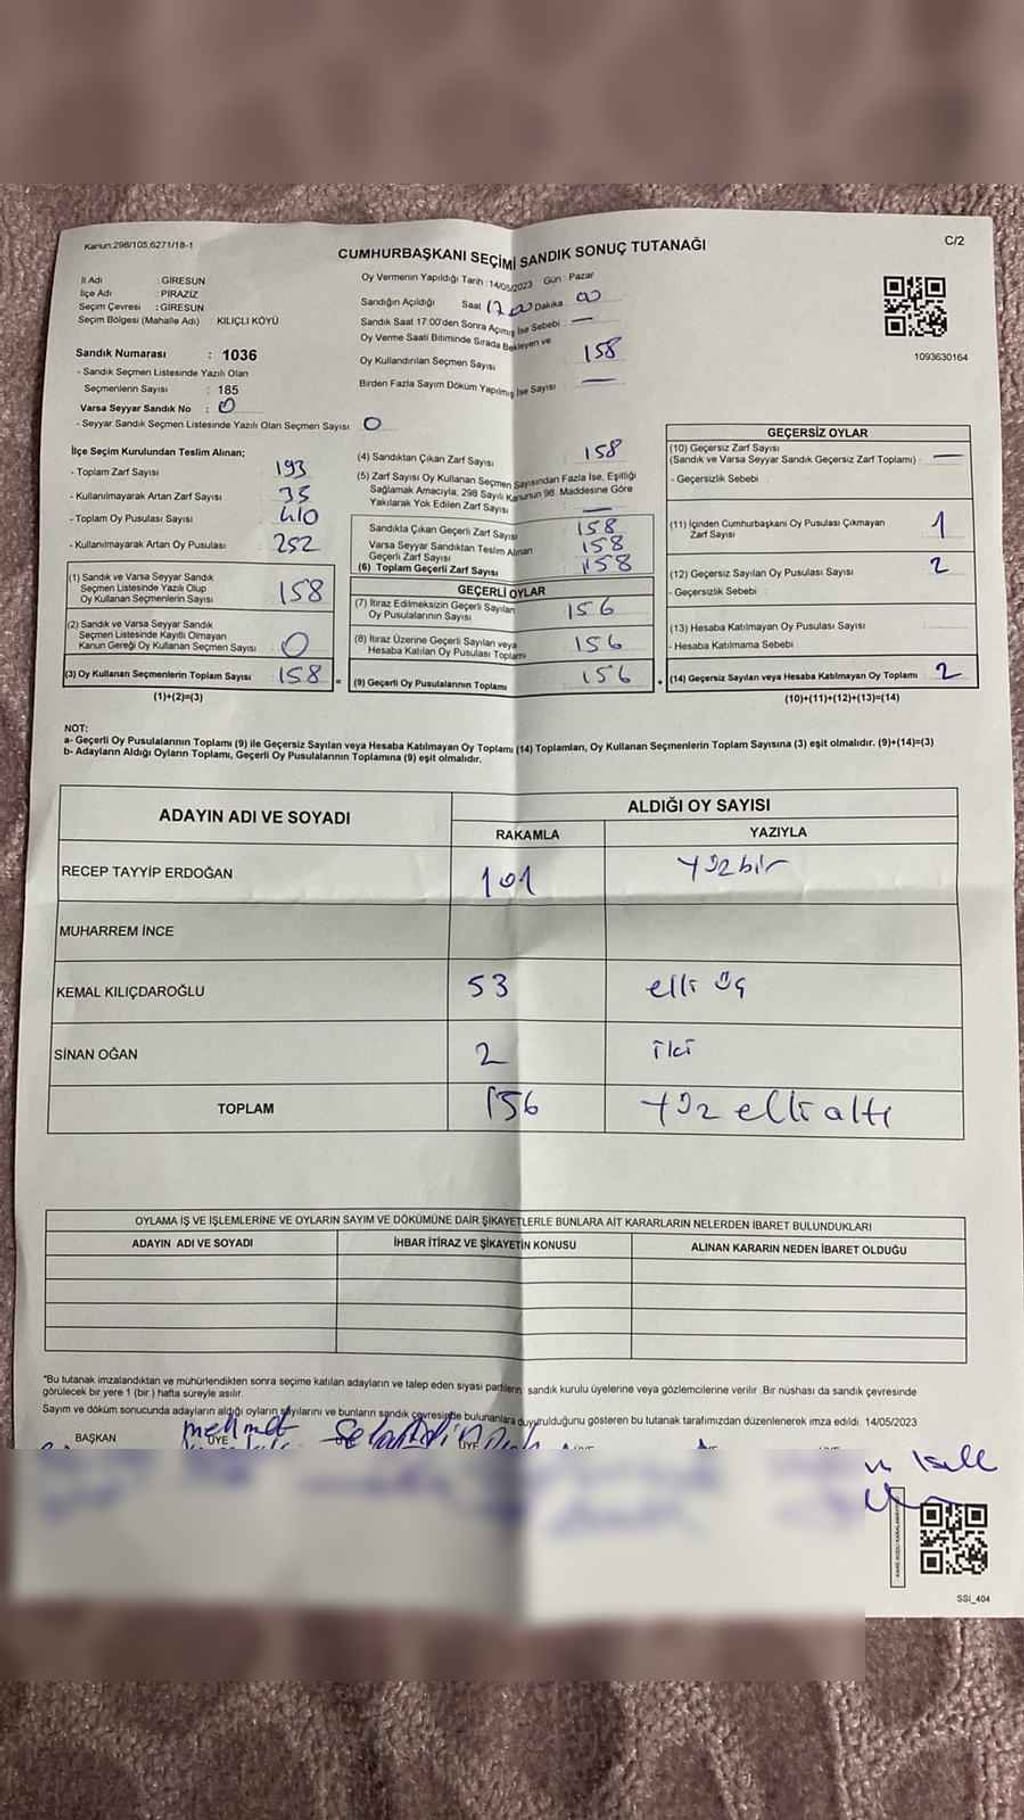 Kanun:298/105,6271/18-1
C/2
CUMHURBAŞKANI SEÇİMİ SANDIK SONUÇ TUTANAĞI
İl Adı : GİRESUN
İlçe Adı : PİRAZİZ
Seçim Çevresi : GİRESUN
Seçim Bölgesi (Mahalle Adı) KILIÇLI KÖYÜ
Sandık Numarası : 1036
- Sandık Seçmen Listesinde Yazılı Olan
Seçmenlerin Sayısı : 185
Varsa Seyyar Sandık No : 0
- Seyyar Sandık Seçmen Listesinde Yazılı Olan Seçmen Sayısı 0
Oy Vermenin Yapıldığı Tarih : 14/05/2023 Gün : Pazar
Sandığın Açıldığı Saat 17.00 Dakika 00
Sandık Saat 17:00'den Sonra Açımış İse Sebebi : —
Oy Verme Saati Bitiminde Sırada Bekleyen ve
Oy Kullandırılan Seçmen Sayısı 158
Birden Fazla Sayım Döküm Yapılmış İse Sayısı —
1093630164
İlçe Seçim Kurulundan Teslim Alınan;
- Toplam Zarf Sayısı 193
- Kullanılmayarak Artan Zarf Sayısı 35
- Toplam Oy Pusulası Sayısı 410
- Kullanılmayarak Artan Oy Pusulası 252
(1) Sandık ve Varsa Seyyar Sandık
Seçmen Listesinde Yazılı Olup
Oy Kullanan Seçmenlerin Sayısı 158
(2) Sandık ve Varsa Seyyar Sandık
Seçmen Listesinde Kayıtlı Olmayan
Kanun Gereği Oy Kullanan Seçmen Sayısı 0
(3) Oy Kullanan Seçmenlerin Toplam Sayısı 158
(1)+(2)=(3)
(4) Sandıktan Çıkan Zarf Sayısı 158
(5) Zarf Sayısı Oy Kullanan Seçmen Sayısından Fazla İse, Eşitliği
Sağlamak Amacıyla, 298 Sayılı Kanunun 98. Maddesine Göre
Yakılarak Yok Edilen Zarf Sayısı —
Sandıkta Çıkan Geçerli Zarf Sayısı 158
Varsa Seyyar Sandıktan Teslim Alınan
Geçerli Zarf Sayısı 158
(6) Toplam Geçerli Zarf Sayısı 158
GEÇERLİ OYLAR
(7) İtiraz Edilmeksizin Geçerli Sayılan
Oy Pusulalarının Sayısı 156
(8) İtiraz Üzerine Geçerli Sayılan veya
Hesaba Katılan Oy Pusulası Toplamı 156
(9) Geçerli Oy Pusulalarının Toplamı 156
GEÇERSİZ OYLAR
(10) Geçersiz Zarf Sayısı
(Sandık ve Varsa Seyyar Sandık Geçersiz Zarf Toplamı) —
- Geçersizlik Sebebi
(11) İçinden Cumhurbaşkanı Oy Pusulası Çıkmayan
Zarf Sayısı 1
(12) Geçersiz Sayılan Oy Pusulası Sayısı 2
- Geçersizlik Sebebi
(13) Hesaba Katılmayan Oy Pusulası Sayısı
- Hesaba Katılmama Sebebi
(14) Geçersiz Sayılan veya Hesaba Katılmayan Oy Toplamı 2
(10)+(11)+(12)+(13)=(14)
NOT:
a- Geçerli Oy Pusulalarının Toplamı (9) ile Geçersiz Sayılan veya Hesaba Katılmayan Oy Toplamı (14) Toplamları, Oy Kullanan Seçmenlerin Toplam Sayısına (3) eşit olmalıdır. (9)+(14)=(3)
b- Adayların Aldığı Oyların Toplamı, Geçerli Oy Pusulalarının Toplamına (9) eşit olmalıdır.
ADAYIN ADI VE SOYADI ALDIĞI OY SAYISI
RAKAMLA YAZIYLA
RECEP TAYYİP ERDOĞAN 101 yüzbir
MUHARREM İNCE
KEMAL KILIÇDAROĞLU 53 elli üç
SİNAN OĞAN 2 iki
TOPLAM 156 yüz elli altı
OYLAMA İŞ VE İŞLEMLERİNE VE OYLARIN SAYIM VE DÖKÜMÜNE DAİR ŞİKAYETLERLE BUNLARA AİT KARARLARIN NELERDEN İBARET BULUNDUKLARI
ADAYIN ADI VE SOYADI İHBAR İTİRAZ VE ŞİKAYETİN KONUSU ALINAN KARARIN NEDEN İBARET OLDUĞU
*Bu tutanak imzalandıktan ve mühürlendikten sonra seçime katılan adayların ve talep eden siyasi partilerin sandık kurulu üyelerine veya gözlemcilerine verilir. Bir nüshası da sandık çevresinde
görülecek bir yere 1 (bir) hafta süreyle asılır.
Sayım ve döküm sonucunda adayların aldığı oyların sayılarını ve bunların sandık çevresinde bulunanlara duyurulduğunu gösteren bu tutanak tarafımızdan düzenlenerek imza edildi. 14/05/2023
BAŞKAN mehmet ÜYE ÜYE
SSI_404